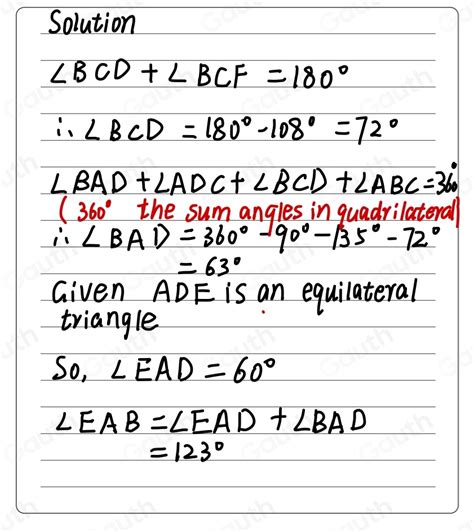 Solution
∠BCD + ∠BCF = 180°
∴ ∠BCD = 180° - 108° = 72°
∠BAD + ∠ADC + ∠BCD + ∠ABC = 360°
( 360° the sum angles in quadrilateral)
∴ ∠BAD = 360° - 90° - 135° - 72°
= 63°
Given ADE is an equilateral
triangle
So, ∠EAD = 60°
∠EAB = ∠EAD + ∠BAD
= 123°